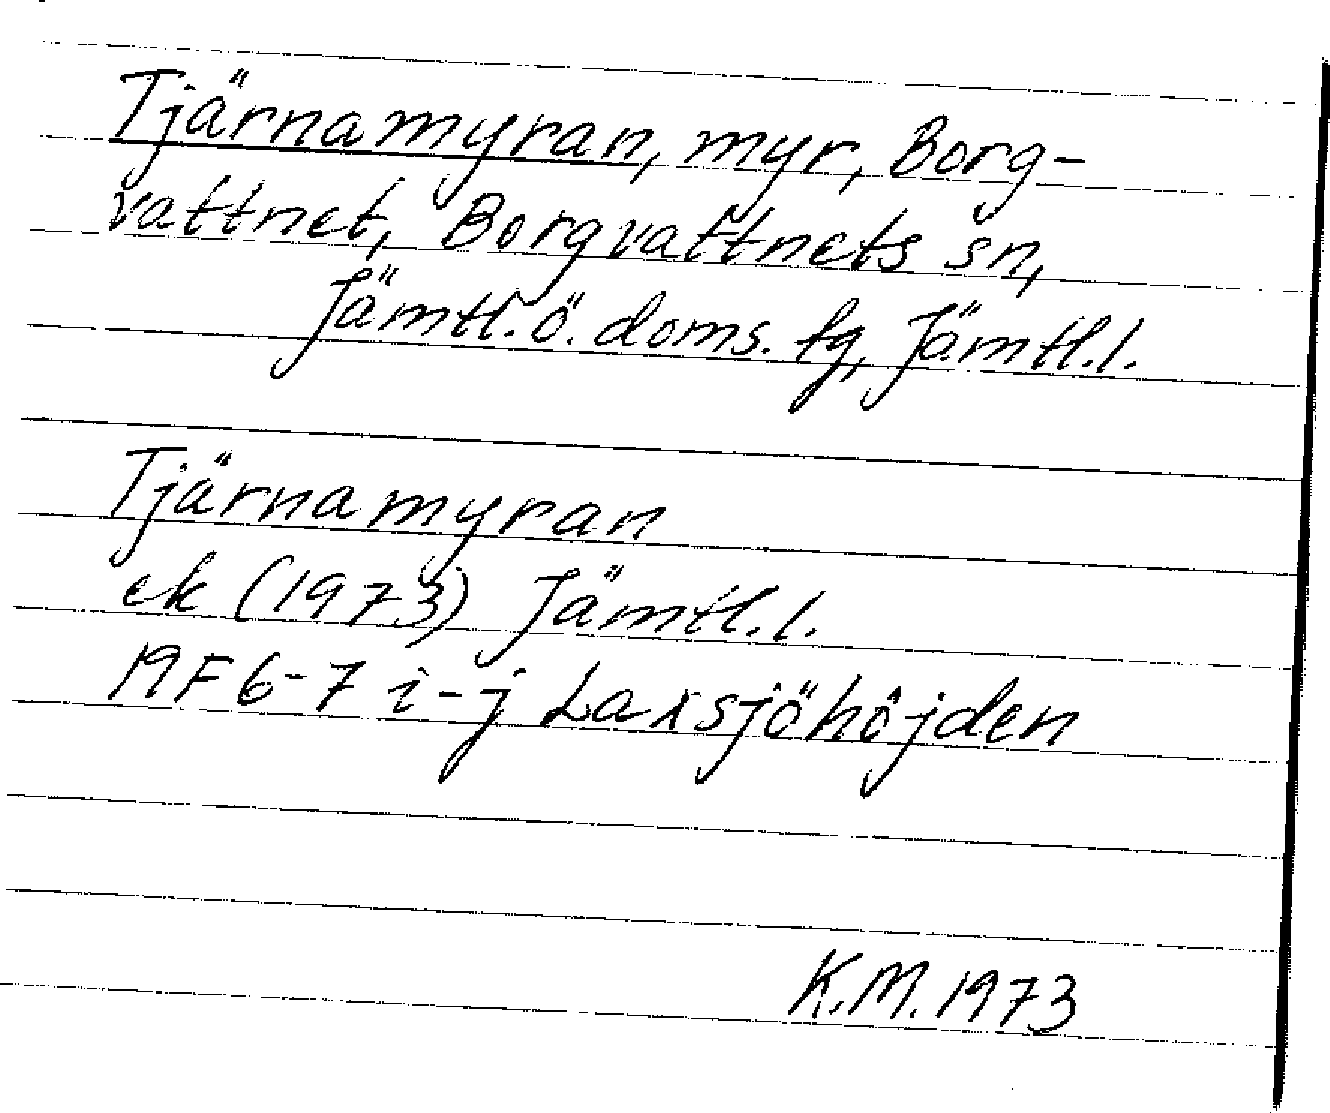 Tjärnamyran, myr, Borg-
vattnet, Borgvattnets sn,
Jämtl. ö. doms. fg, Jämtl. l.
Tjärnamyran
ek (1973) Jämtl. l.
19F 6-7 i-j Laxsjöhöjden
K.M. 1973